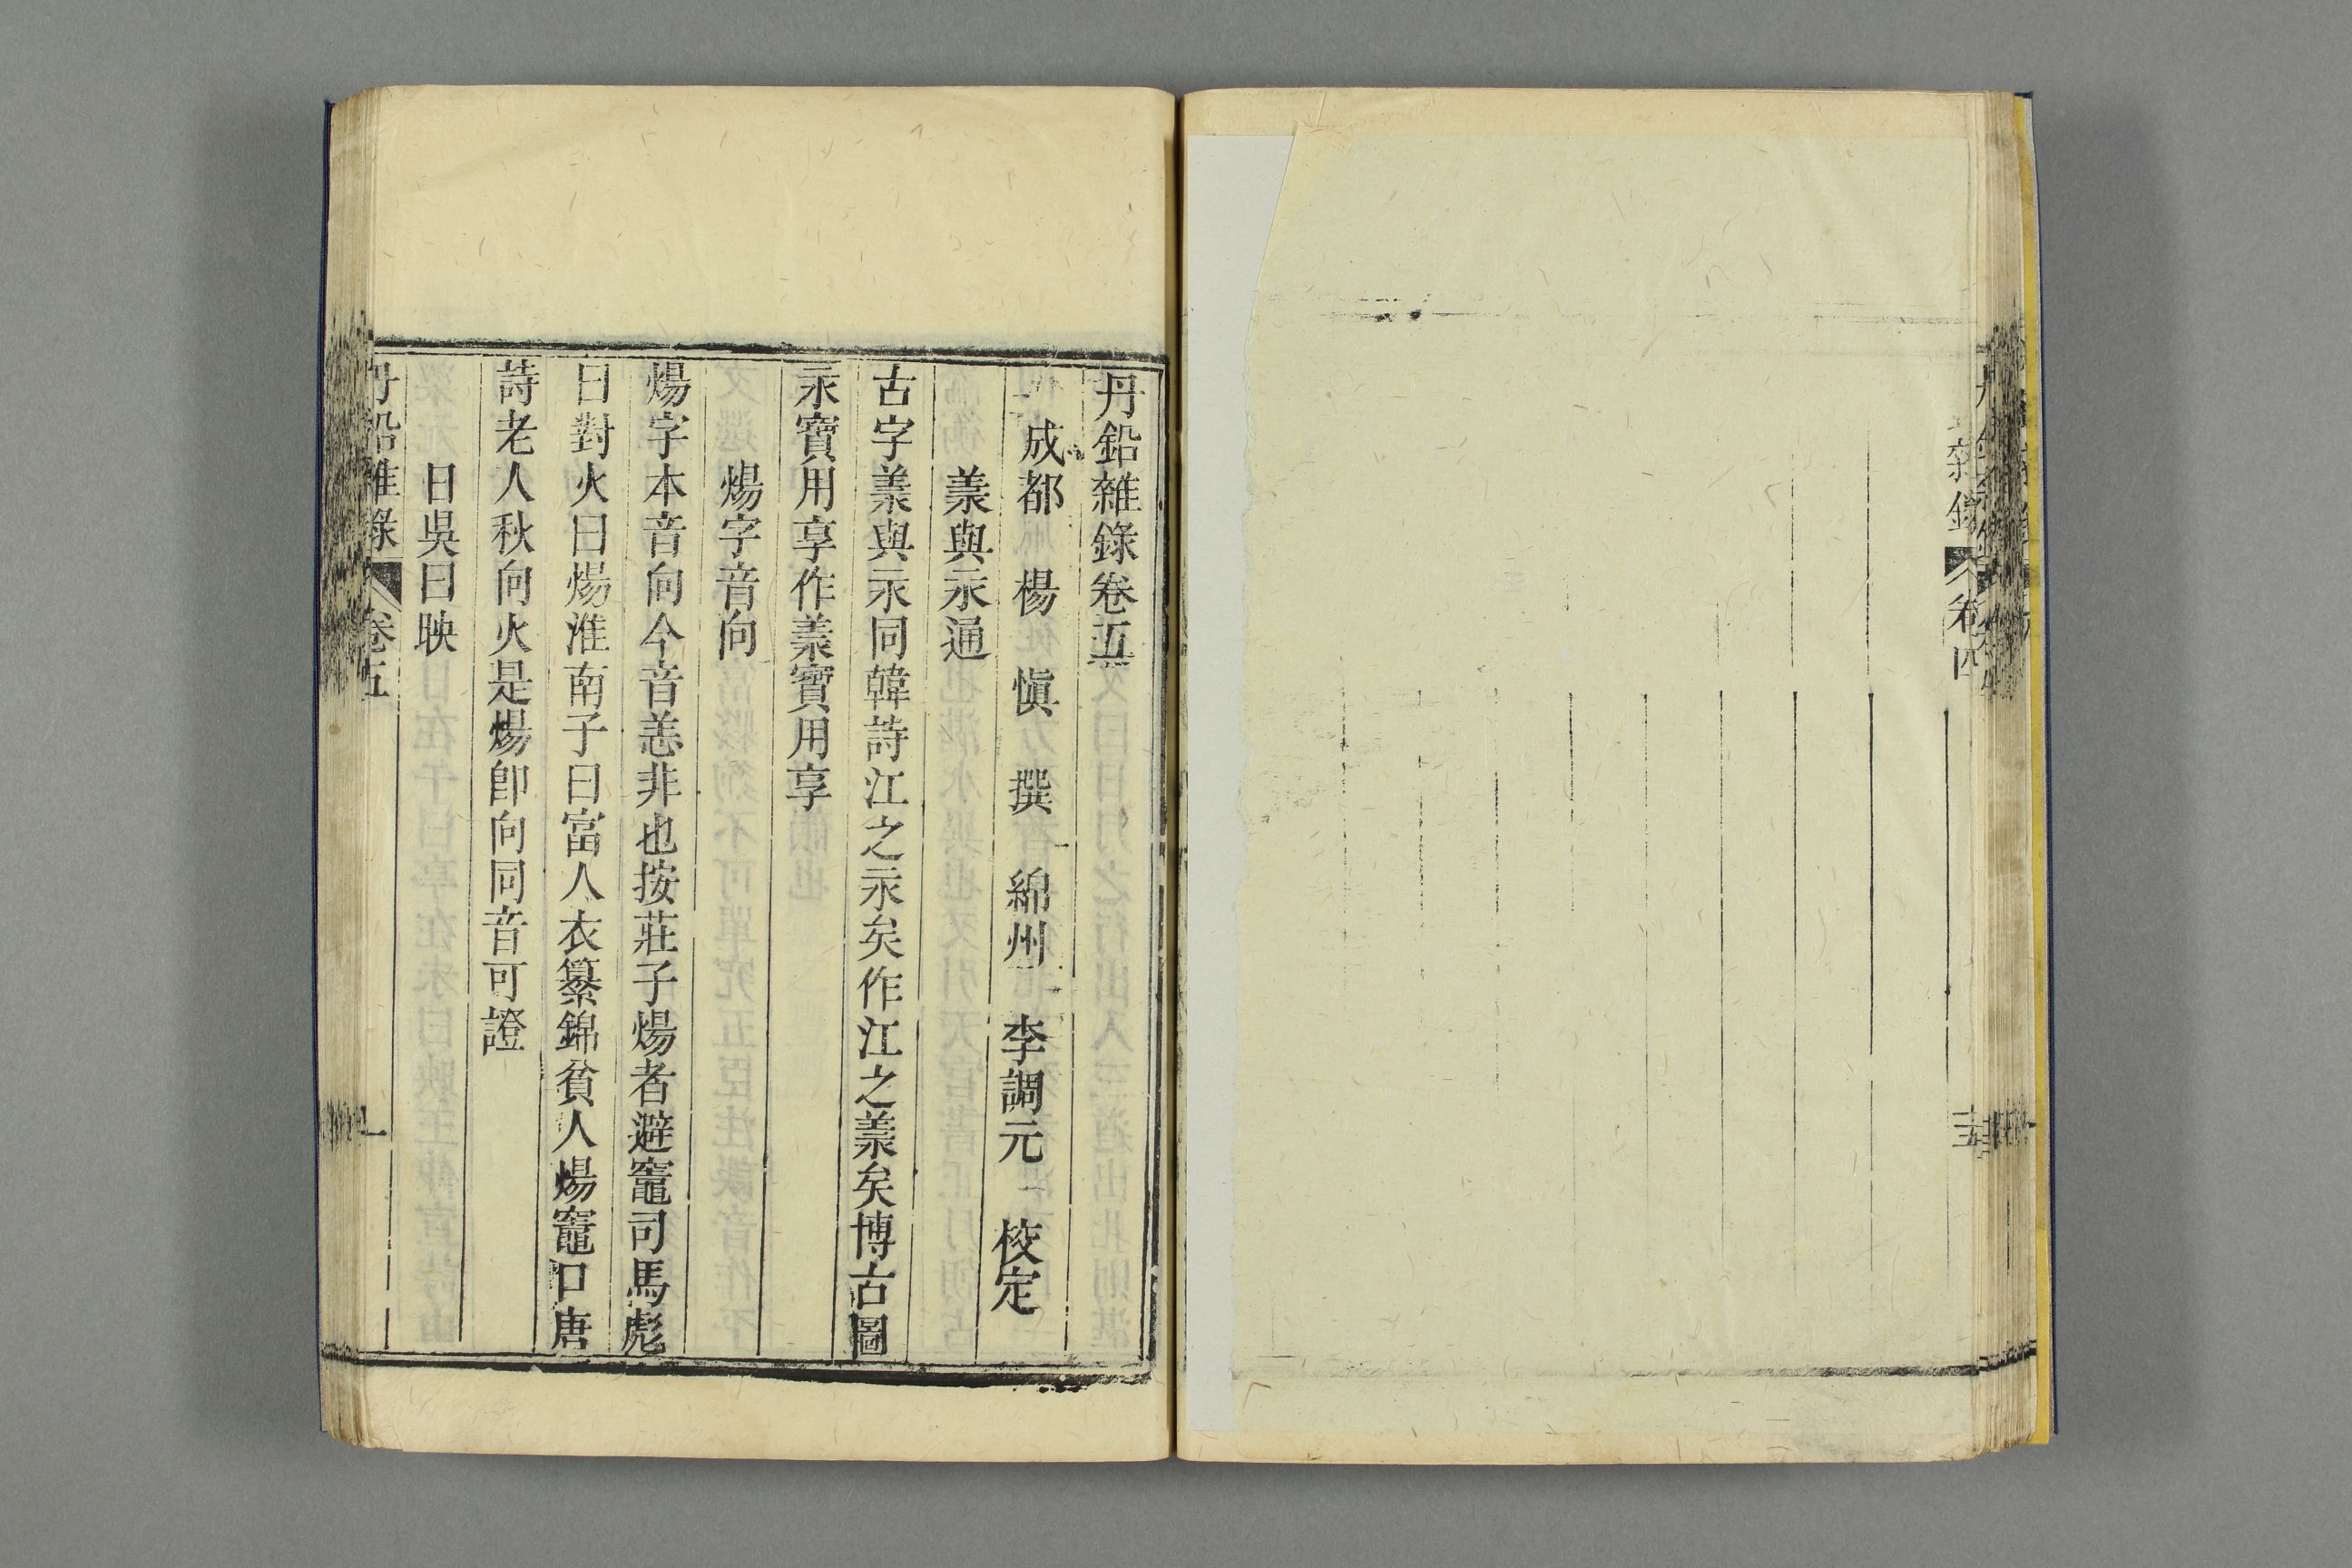 雜錄 卷四
丹鉛雜錄卷五
成都 楊 愼 撰 綿州 李調元 校定
羕與永通
古字羕與永同韓詩江之永矣作江之羕矣博古圖
永寶用享作羕寶用享
煬字音向
煬字本音向今音恙非也按莊子煬者避竈司馬彪
曰對火曰煬淮南子曰富人衣纂錦貧人煬竈口唐
詩老人秋向火是煬卽向同音可證
日吳曰映
丹鉛雜錄 卷五 一